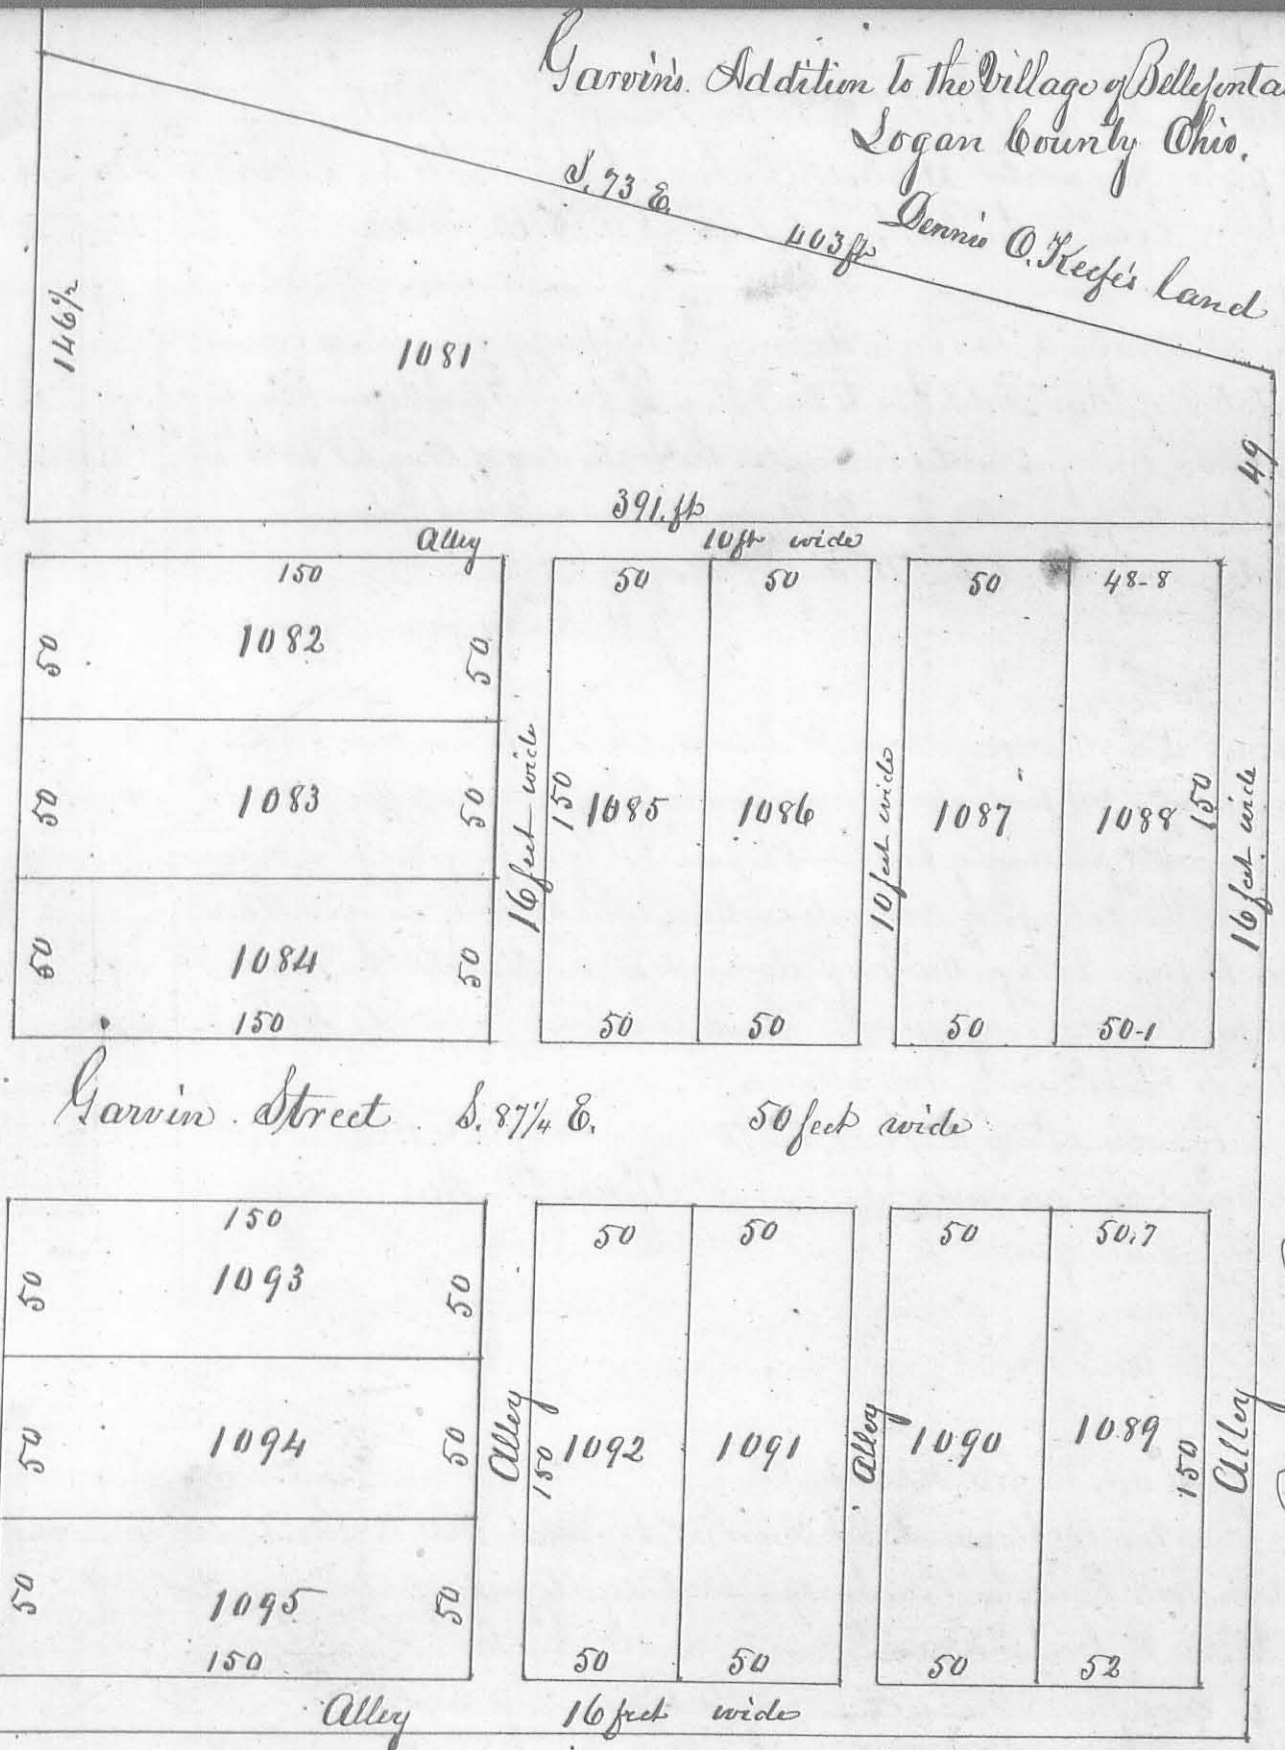 Garvin's Addition to the Village of Bellefonta
Logan County Ohio.
S. 73 E.
403 ft
Dennis O. Keefe's land
146½
1081
49
391. ft
Alley 10 ft wide
150
50 1082 50
50 1083 50
50 1084 50
150
16 feet wide
50 50
150 1085 1086
50 50
10 feet wide
50 48-8
1087 1088 150
50 50-1
16 feet wide
Garvin Street S. 87¼ E. 50 feet wide
150
50 1093 50
50 1094 50
50 1095 50
150
Alley
50 50
150 1092 1091
50 50
Alley
50 50.7
1090 1089 150
50 52
Alley
Alley 16 feet wide